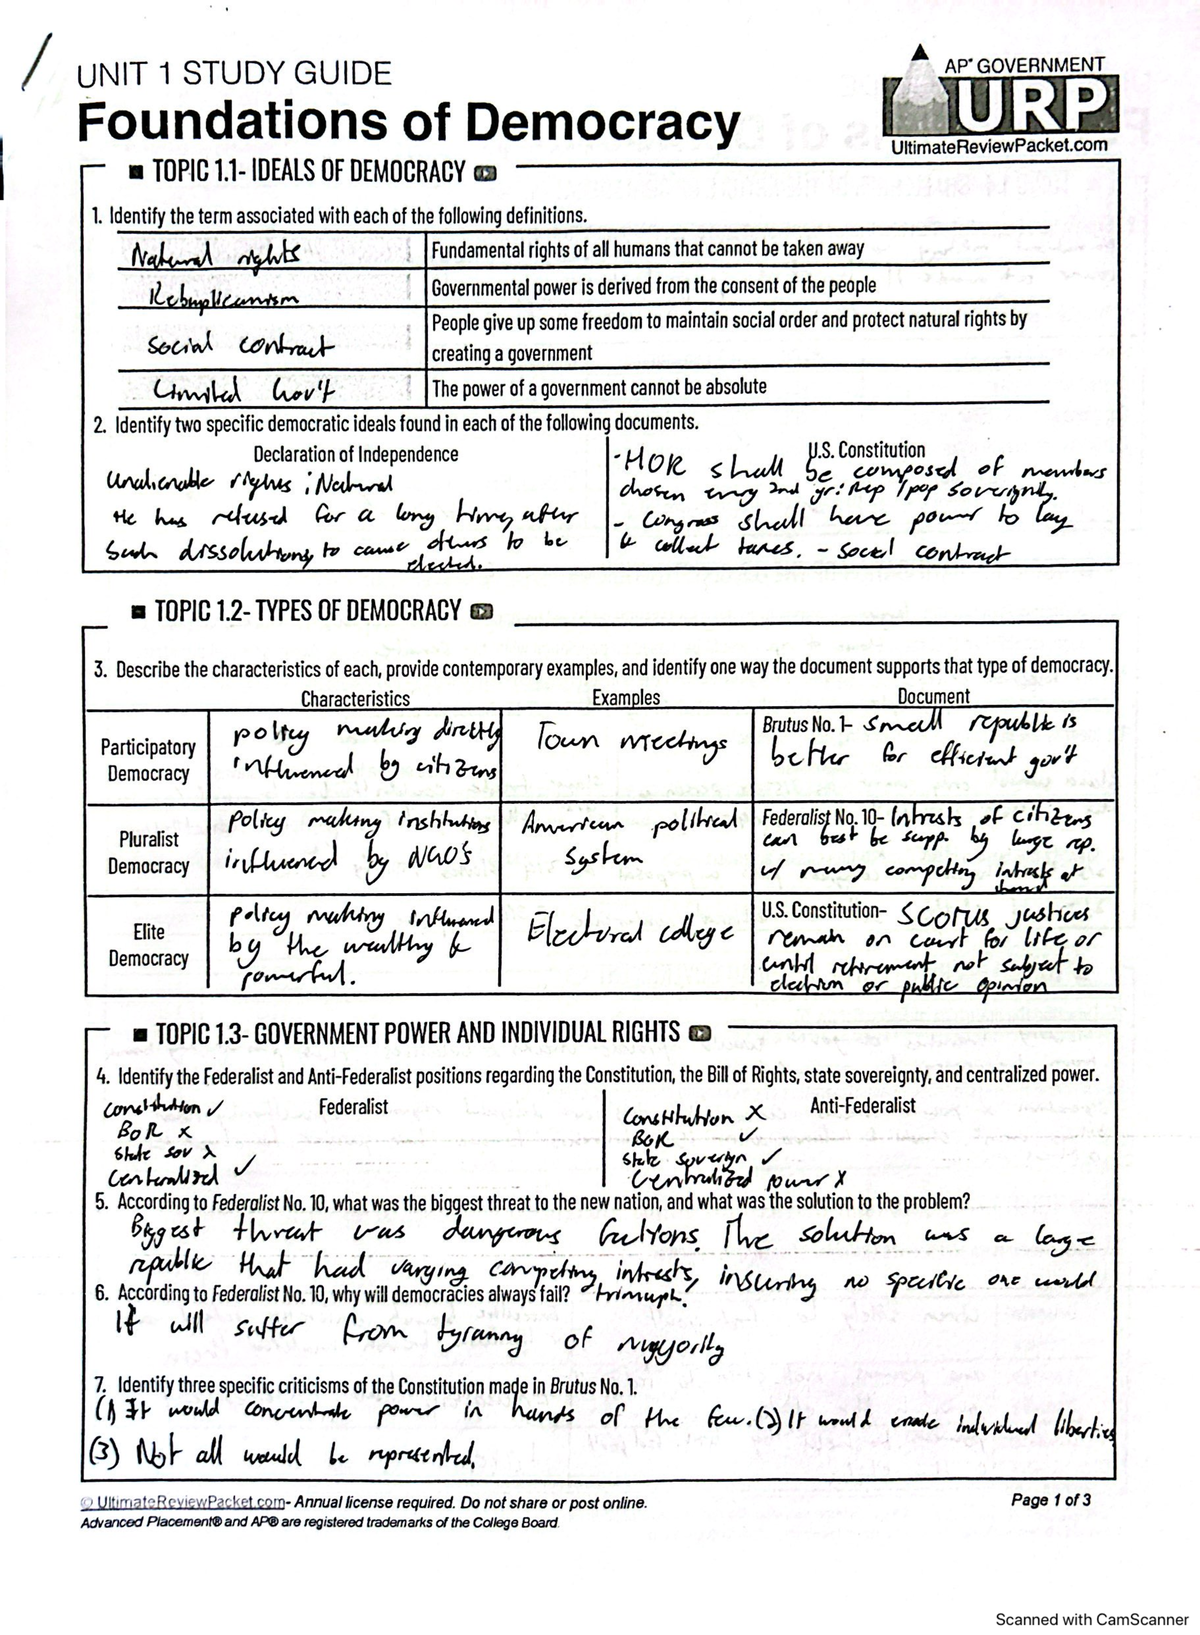 UNIT 1 STUDY GUIDE
Foundations of Democracy
AP® GOVERNMENT
URP
UltimateReviewPacket.com
TOPIC 1.1- IDEALS OF DEMOCRACY
1. Identify the term associated with each of the following definitions.
Natural rights
Fundamental rights of all humans that cannot be taken away
Rebuplicanism
Governmental power is derived from the consent of the people
Social contract
People give up some freedom to maintain social order and protect natural rights by
creating a government
Limited Gov't
The power of a government cannot be absolute
2. Identify two specific democratic ideals found in each of the following documents.
Declaration of Independence
Unalienable rights ; Natural
He has refused for a long time, after
such dissolutions, to cause others to be
elected.
U.S. Constitution
- HOR shall be composed of members
chosen every 2nd yr: Rep / pop sovereignty.
- Congress shall have power to lay
& collect taxes. - Social contract
TOPIC 1.2- TYPES OF DEMOCRACY
3. Describe the characteristics of each, provide contemporary examples, and identify one way the document supports that type of democracy.
Characteristics
Examples
Document
Participatory
Democracy
policy making directly
influenced by citizens
Town meetings
Brutus No. 1- Small republic is
better for efficient gov't
Pluralist
Democracy
Policy making institutions
influenced by NGO's
American political
System
Federalist No. 10- Intrests of citizens
can best be supp. by large rep.
w/ many competing intrests at
hand
Elite
Democracy
policy making influenced
by the wealthy &
powerful.
Electoral college
U.S. Constitution- SCOTUS justices
remain on court for life or
until retirement not subject to
election or public opinion
TOPIC 1.3- GOVERNMENT POWER AND INDIVIDUAL RIGHTS
4. Identify the Federalist and Anti-Federalist positions regarding the Constitution, the Bill of Rights, state sovereignty, and centralized power.
Federalist
Constitution ✓
BOR x
State sov x
Centralized ✓
Anti-Federalist
Constitution X
BOR ✓
State soverign ✓
Centralized power X
5. According to Federalist No. 10, what was the biggest threat to the new nation, and what was the solution to the problem?
Biggest threat was dangerous factions. The solution was a large
republic that had varying competing intrests, insuring no specific one would
"trimuph."
6. According to Federalist No. 10, why will democracies always fail?
It will suffer from tyranny of majority
7. Identify three specific criticisms of the Constitution made in Brutus No. 1.
(1) It would concentrate power in hands of the few. (2) It would erode individual liberties
(3) Not all would be represented.
© UltimateReviewPacket.com- Annual license required. Do not share or post online.
Advanced Placement® and AP® are registered trademarks of the College Board.
Page 1 of 3
Scanned with CamScanner